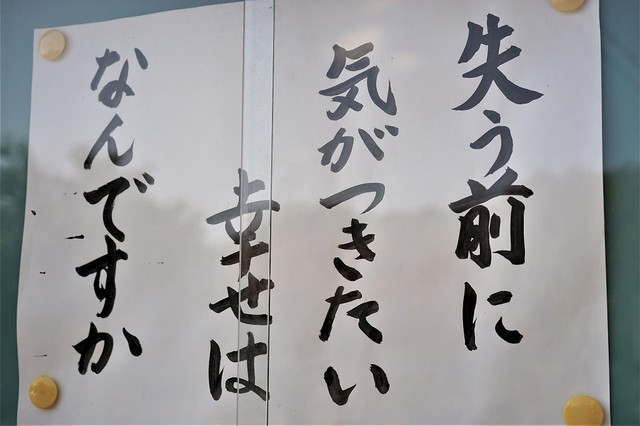 失う前に
気がつきたい
幸せは
なんですか